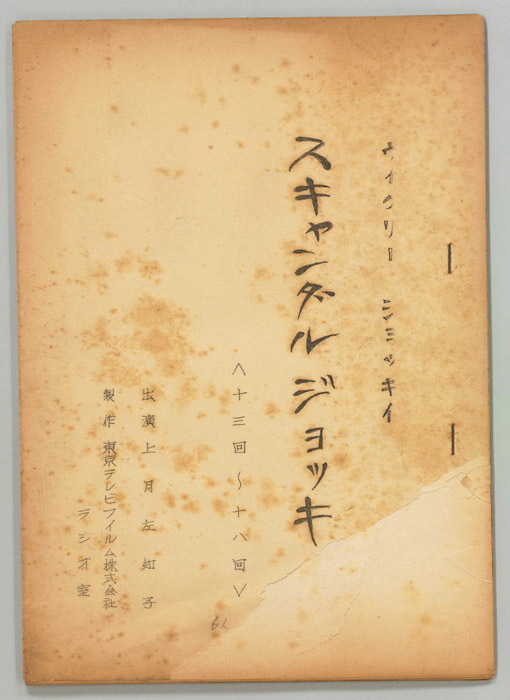 ウイクリー
スキャンダルジョッキ
＜十三回～十八回＞
出演上月左知子
製作東京テレビフイルム株式会社
ラジオ室